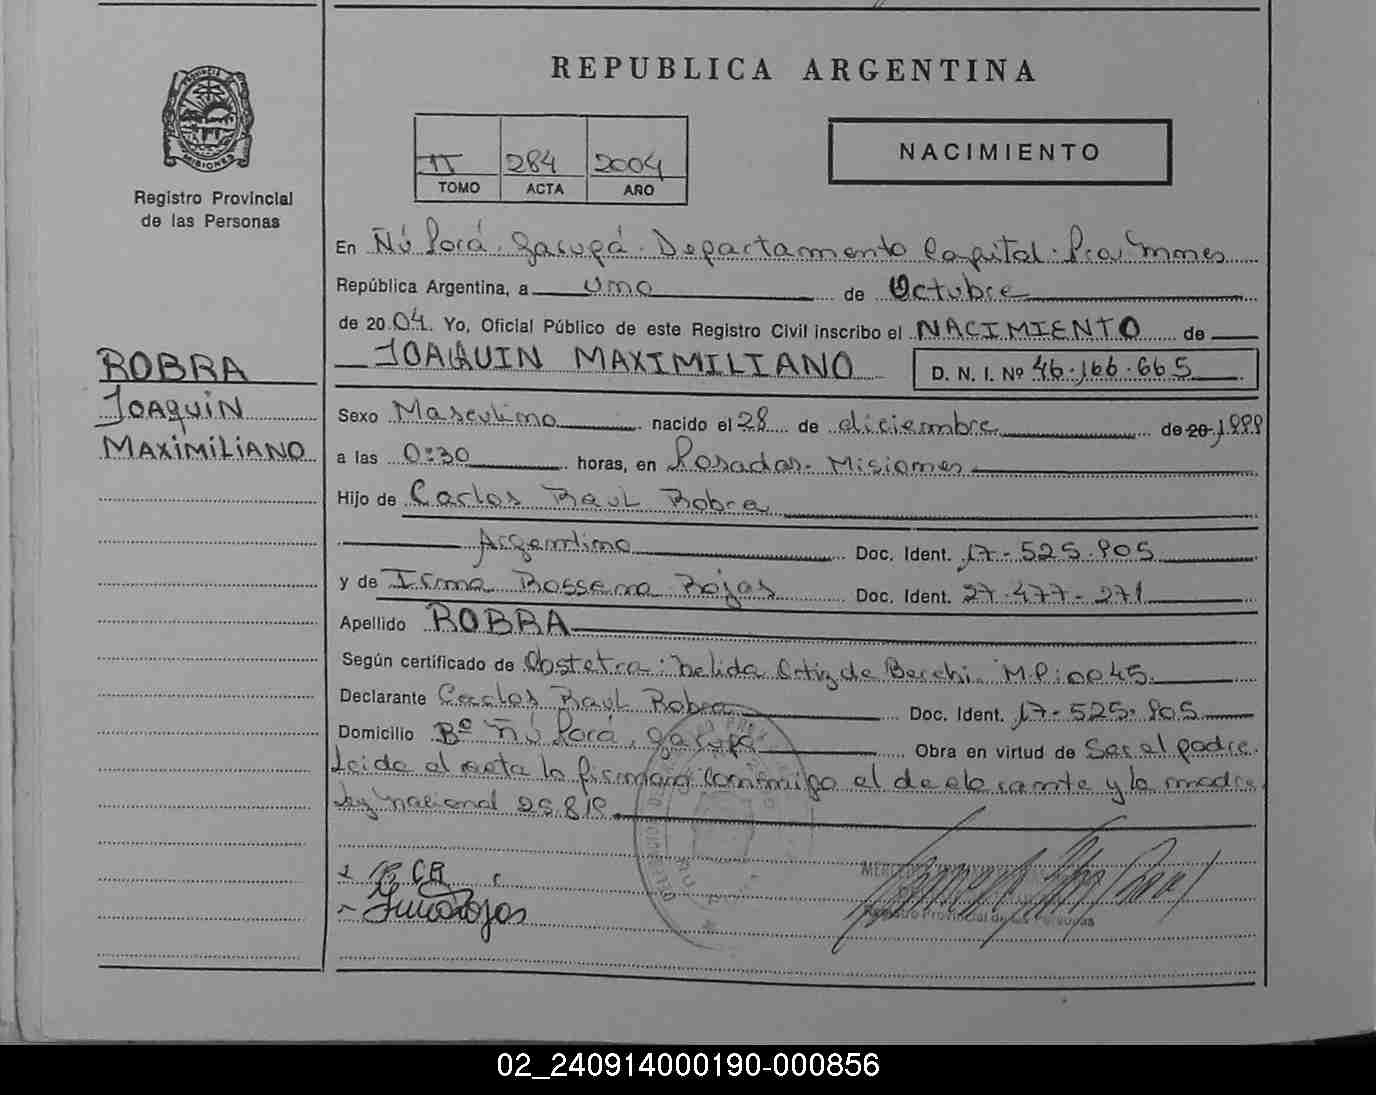 REPUBLICA ARGENTINA
PROVINCIA DE
MISIONES
Registro Provincial
de las Personas
II 284 2004
TOMO ACTA AÑO
NACIMIENTO
En Ñú Porá. Garupá. Departamento Capital. Pcia Mnes
República Argentina, a uno de Octubre
de 2004. Yo, Oficial Público de este Registro Civil inscribo el NACIMIENTO de
JOAQUIN MAXIMILIANO D. N. I. Nº 46.166.665
ROBRA
JOAQUIN
MAXIMILIANO
Sexo Masculino nacido el 28 de diciembre de 20 1999
a las 0:30 horas, en Posadas. Misiones
Hijo de Carlos Raul Robra
Argentino Doc. Ident. 17.525.905
y de Irma Rossena Rojas Doc. Ident. 27.477.271
Apellido ROBRA
Según certificado de Obstetra: Nelida Ortiz de Berchi. M.P:0045
Declarante Carlos Raul Robra Doc. Ident. 17.525.905
Domicilio Bº Ñú Porá. Garupá Obra en virtud de Ser el padre.
Leida el acta la firman conmigo el declarante y la madre.
Ley nacional 25.819
CR
Irma Rojas
Registro Provincial de las Personas
02_240914000190-000856